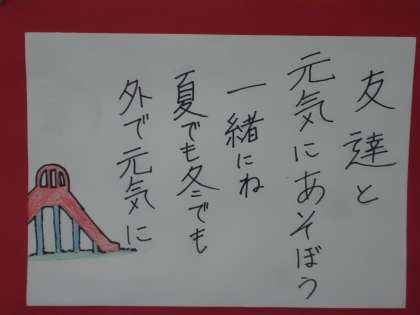 友達と
元気にあそぼう
一緒にね
夏でも冬でも
外で元気に